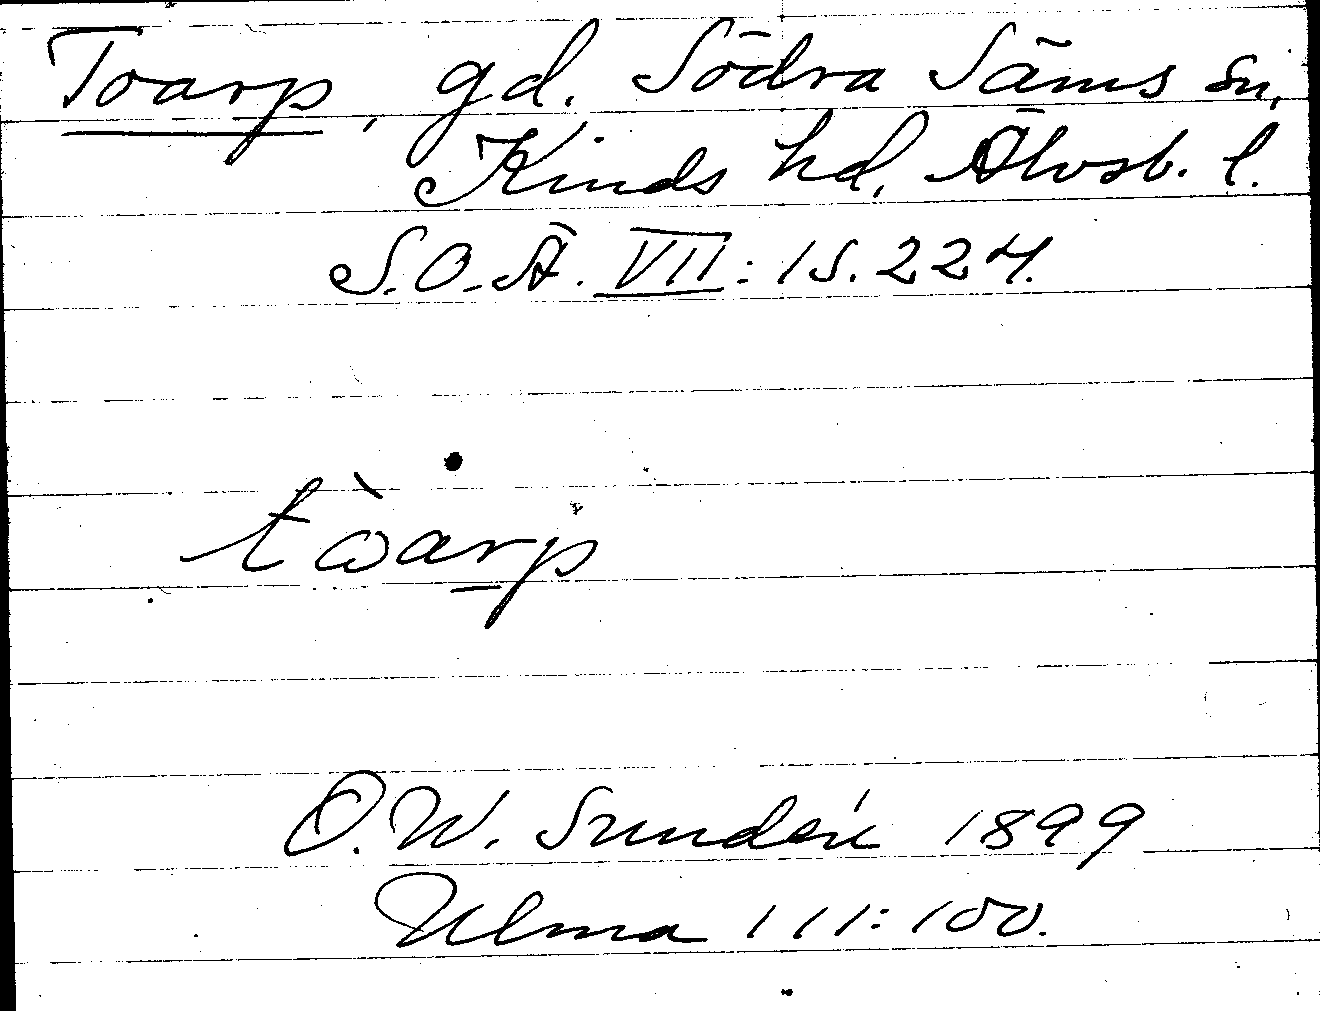 Toarp, gd. Södra Säms sn,
Kinds hd, Älvsb. l.
S.O.Ä. VII: 1 S. 224.
tòarp
O.W. Sundén 1899
Ulma 111:100.